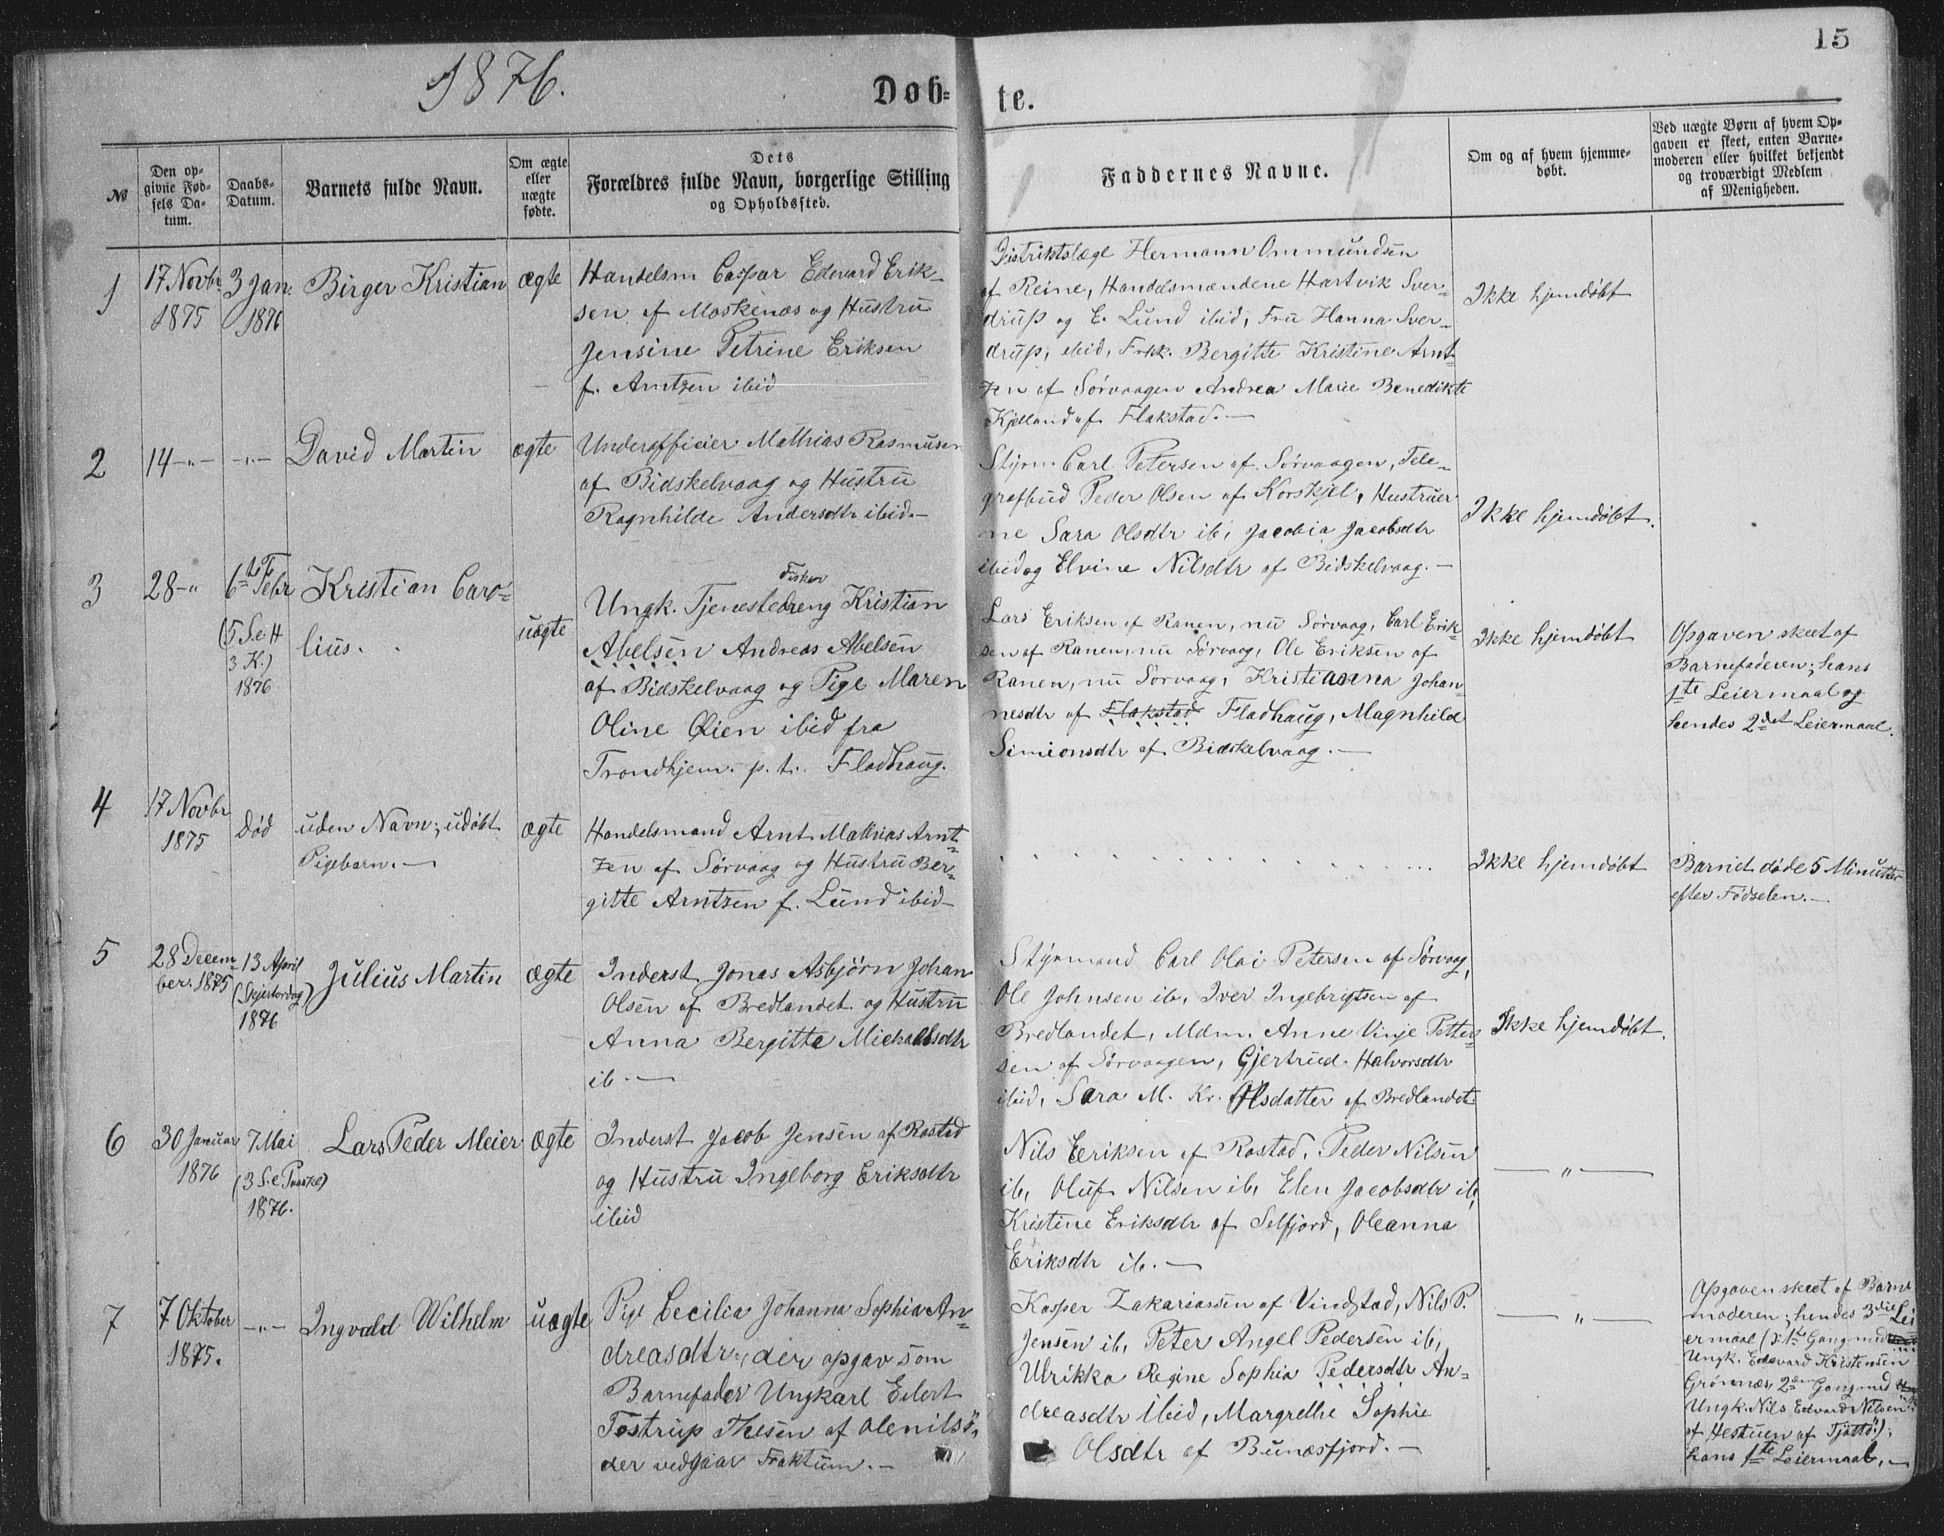 15
1876.
Døb-
te.
№
Den op-
givne Fød-
sels Da-
tum.
Daabs-
Datum.
Barnets fulde Navn.
Om ægte
eller
uægte
fødte.
Dets
Forældres fulde Navn, borgerlige Stilling
og Opholdssted.
Faddernes Navne.
Om og af hvem hjemme-
døbt.
Ved uægte Børn af hvem Op-
gaven er skeet, enten Barne-
moderen eller hvilket bekjendt
og troværdigt Medlem
af Menigheden.
1
17 Novbr
1875
3 Jan.
1876
Birger Kristian
ægte
Handelsm Caspar Edevard Erik-
sen af Moskenæs og Hustru
Jensine Petrine Eriksen
f. Arntzen ibid
Distriktslæge Hermann Ommundsen
af Reine, Handelsmændene Hartvik Sver-
drup og E. Lund ibid, Fru Hanna Sver-
drup, ibid, Frkk. Bergitte Kristine Arnt-
zen af Sørvaagen Andrea Marie Benedikte
Kjelland af Flakstad. —
Ikke hjemdøbt
2
14 -„-
-„-
David Martin
ægte
Underofficier Mathias Rasmusen
af Bidskelvaag og Hustru
Ragnhilde Andersdtr ibid. —
Styrm Carl Petersen af Sørvaagen, Tele-
grafbud Peder Olsen af Korskjel, Hustruer
ne Sara Olsdtr ib, Jacobia Jacobsdtr
ibid og Elvine Nilsdtr af Bidskelvaag. —
Ikke hjemdøbt.
3
28 -„
6te Febr
(5 S. e. H
3 K.)
1876
Kristian Caro-
lius.
uægte
Fisker
Ungk. Tjenestedreng Kristian
Abelsen Andreas Abelsen
af Bidskelvaag og Pige Maren
Oline Øien ibid fra
Trondhjem. p. t. Fladhaug.
Lars Eriksen af Ranen, nu Sørvaag, Carl Erik-
sen af Ranen, nu Sørvaag, Ole Eriksen af
Ranen, nu Sørvaag, Kristianna Johan-
nesdtr af Flakstad Fladhaug, Magnhild
Simionsdtr af Bidskelvaag. —
Ikke hjemdøbt
Opgaven skeet af
Barnefaderen; hans
1te Leiermaal og
hendes 2det Leiermaal.
4
17 Novbr
1875
Død
uden Navn; udøbt
Pigebarn. —
ægte
Handelsmand Arnt Mathias Arnt-
zen af Sørvaag og Hustru Ber-
gitte Arntzen f. Lund ibid -
Ikke hjemdøbt
Barnet døde 5 Minutter
efter Fødselen. —
5
28 Decem-
ber. 1875
13 April
(Skjertorsdag)
1876
Julius Martin
ægte
Inderst Jonas Asbjørn Johan
Olsen af Bredlandet og Hustru
Anna Bergitte Michaelsdtr
ib. —
Styrmand Carl Olai Petersen af Sørvaag,
Ole Johnsen ib, Iver Ingebrigtsen af
Bredlandet, Mdm. Anne Vinje Petter-
sen af Sørvaagen, Gjertrud Halvorsdtr
ibid, Sara M. Kr. Olsdatter af Bredlandet.
Ikke hjemdøbt.
6
30 Januar
1876
7 Mai
(3 S. e. Paaske)
1876.
Lars Peder Meier
ægte
Inderst Jacob Jensen af Rostad
og Hustru Ingeborg Eriksdtr
ibid
Nils Eriksen af Rostad, Peder Nilsen
ib, Oluf Nilsen ib, Elen Jacobsdtr ib,
Kristine Eriksdtr af Selfjord, Oleanna
Eriksdtr ib. —
— „ —
7
7 Oktober
1875.
-„-
Ingvald Wilhelm
uægte
Pige Cecilia Johanna Sophia An-
dreasdtr, der opgav som
Barnefader Ungkarl Eilert
Tostrup Thesen af Olenilsö,
der vedgaar Faktum. —
Kasper Zakariassen af Vindstad, Nils P.
Jensen ib, Peter Angel Pedersen ib,
Ulrikka Regine Sophia Pedersdtr An-
dreasdtr ibid, Margrethe Sophie
Olsdtr af Bunæsfjord. —
— „ —
Opgaven skeet af Barne
moderen; hendes 3die Lei
ermaal (: 1te Gang med
Ungk. Edevard Kristensen
Grønnæs, 2den Gang med
Ungk. Nils Edvard Nilsen
af Hestuen af Tjøttö:);
hans 1te Leiermaal. —